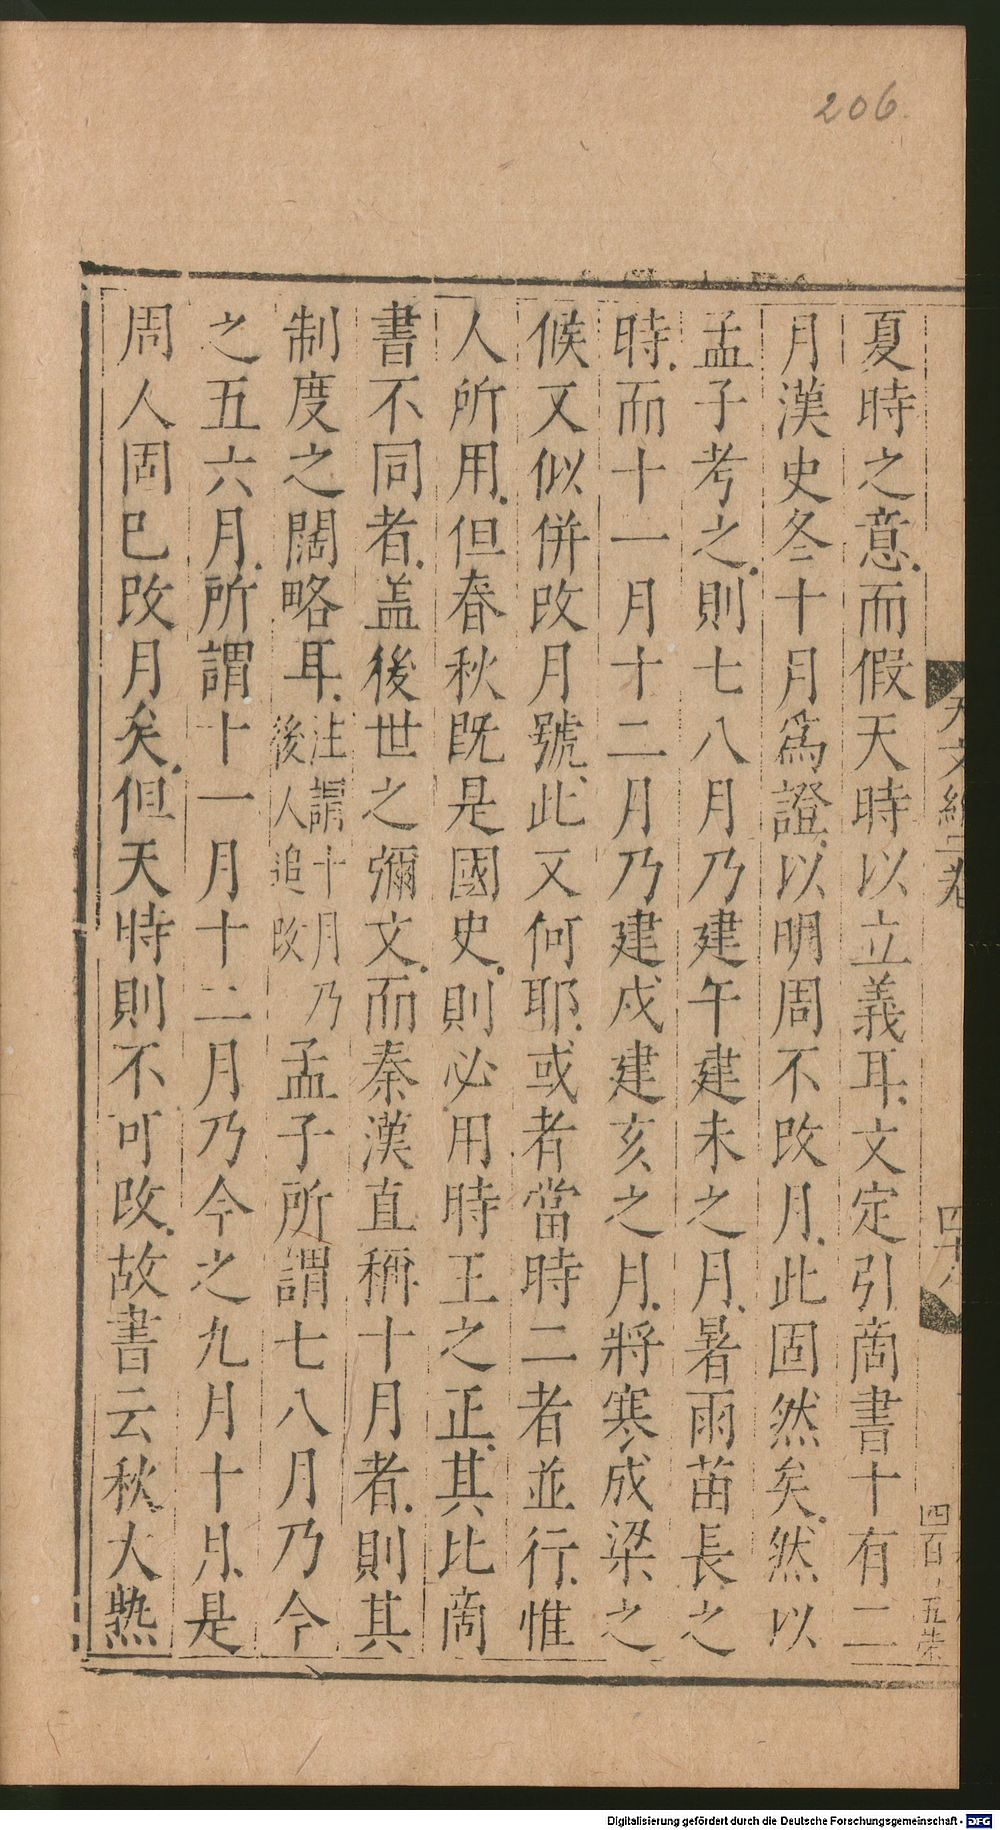 206
夏時之意而假天時以立義耳文定引商書十有二
月漢史冬十月爲證以明周不改月此固然矣然以
孟子考之則七八月乃建午建未之月暑雨苗長之
時而十一月十二月乃建戌建亥之月將寒成梁之
候又似併改月號此又何耶或者當時二者並行惟
人所用但春秋既是國史則必用時王之正其比商
書不同者盖後世之彌文而秦漢直稱十月者則其
制度之闊略耳注謂十月乃後人追改孟子所謂七八月乃今
之五六月所謂十一月十二月乃今之九月十月是
周人固已改月矣但天時則不可改故書云秋大熟
Digitalisierung gefördert durch die Deutsche Forschungsgemeinschaft - DFG